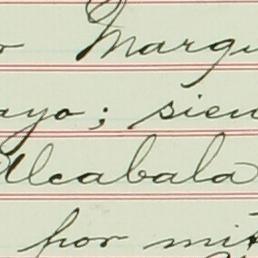 o Margu
ayo; sien
Alcabala
por mit